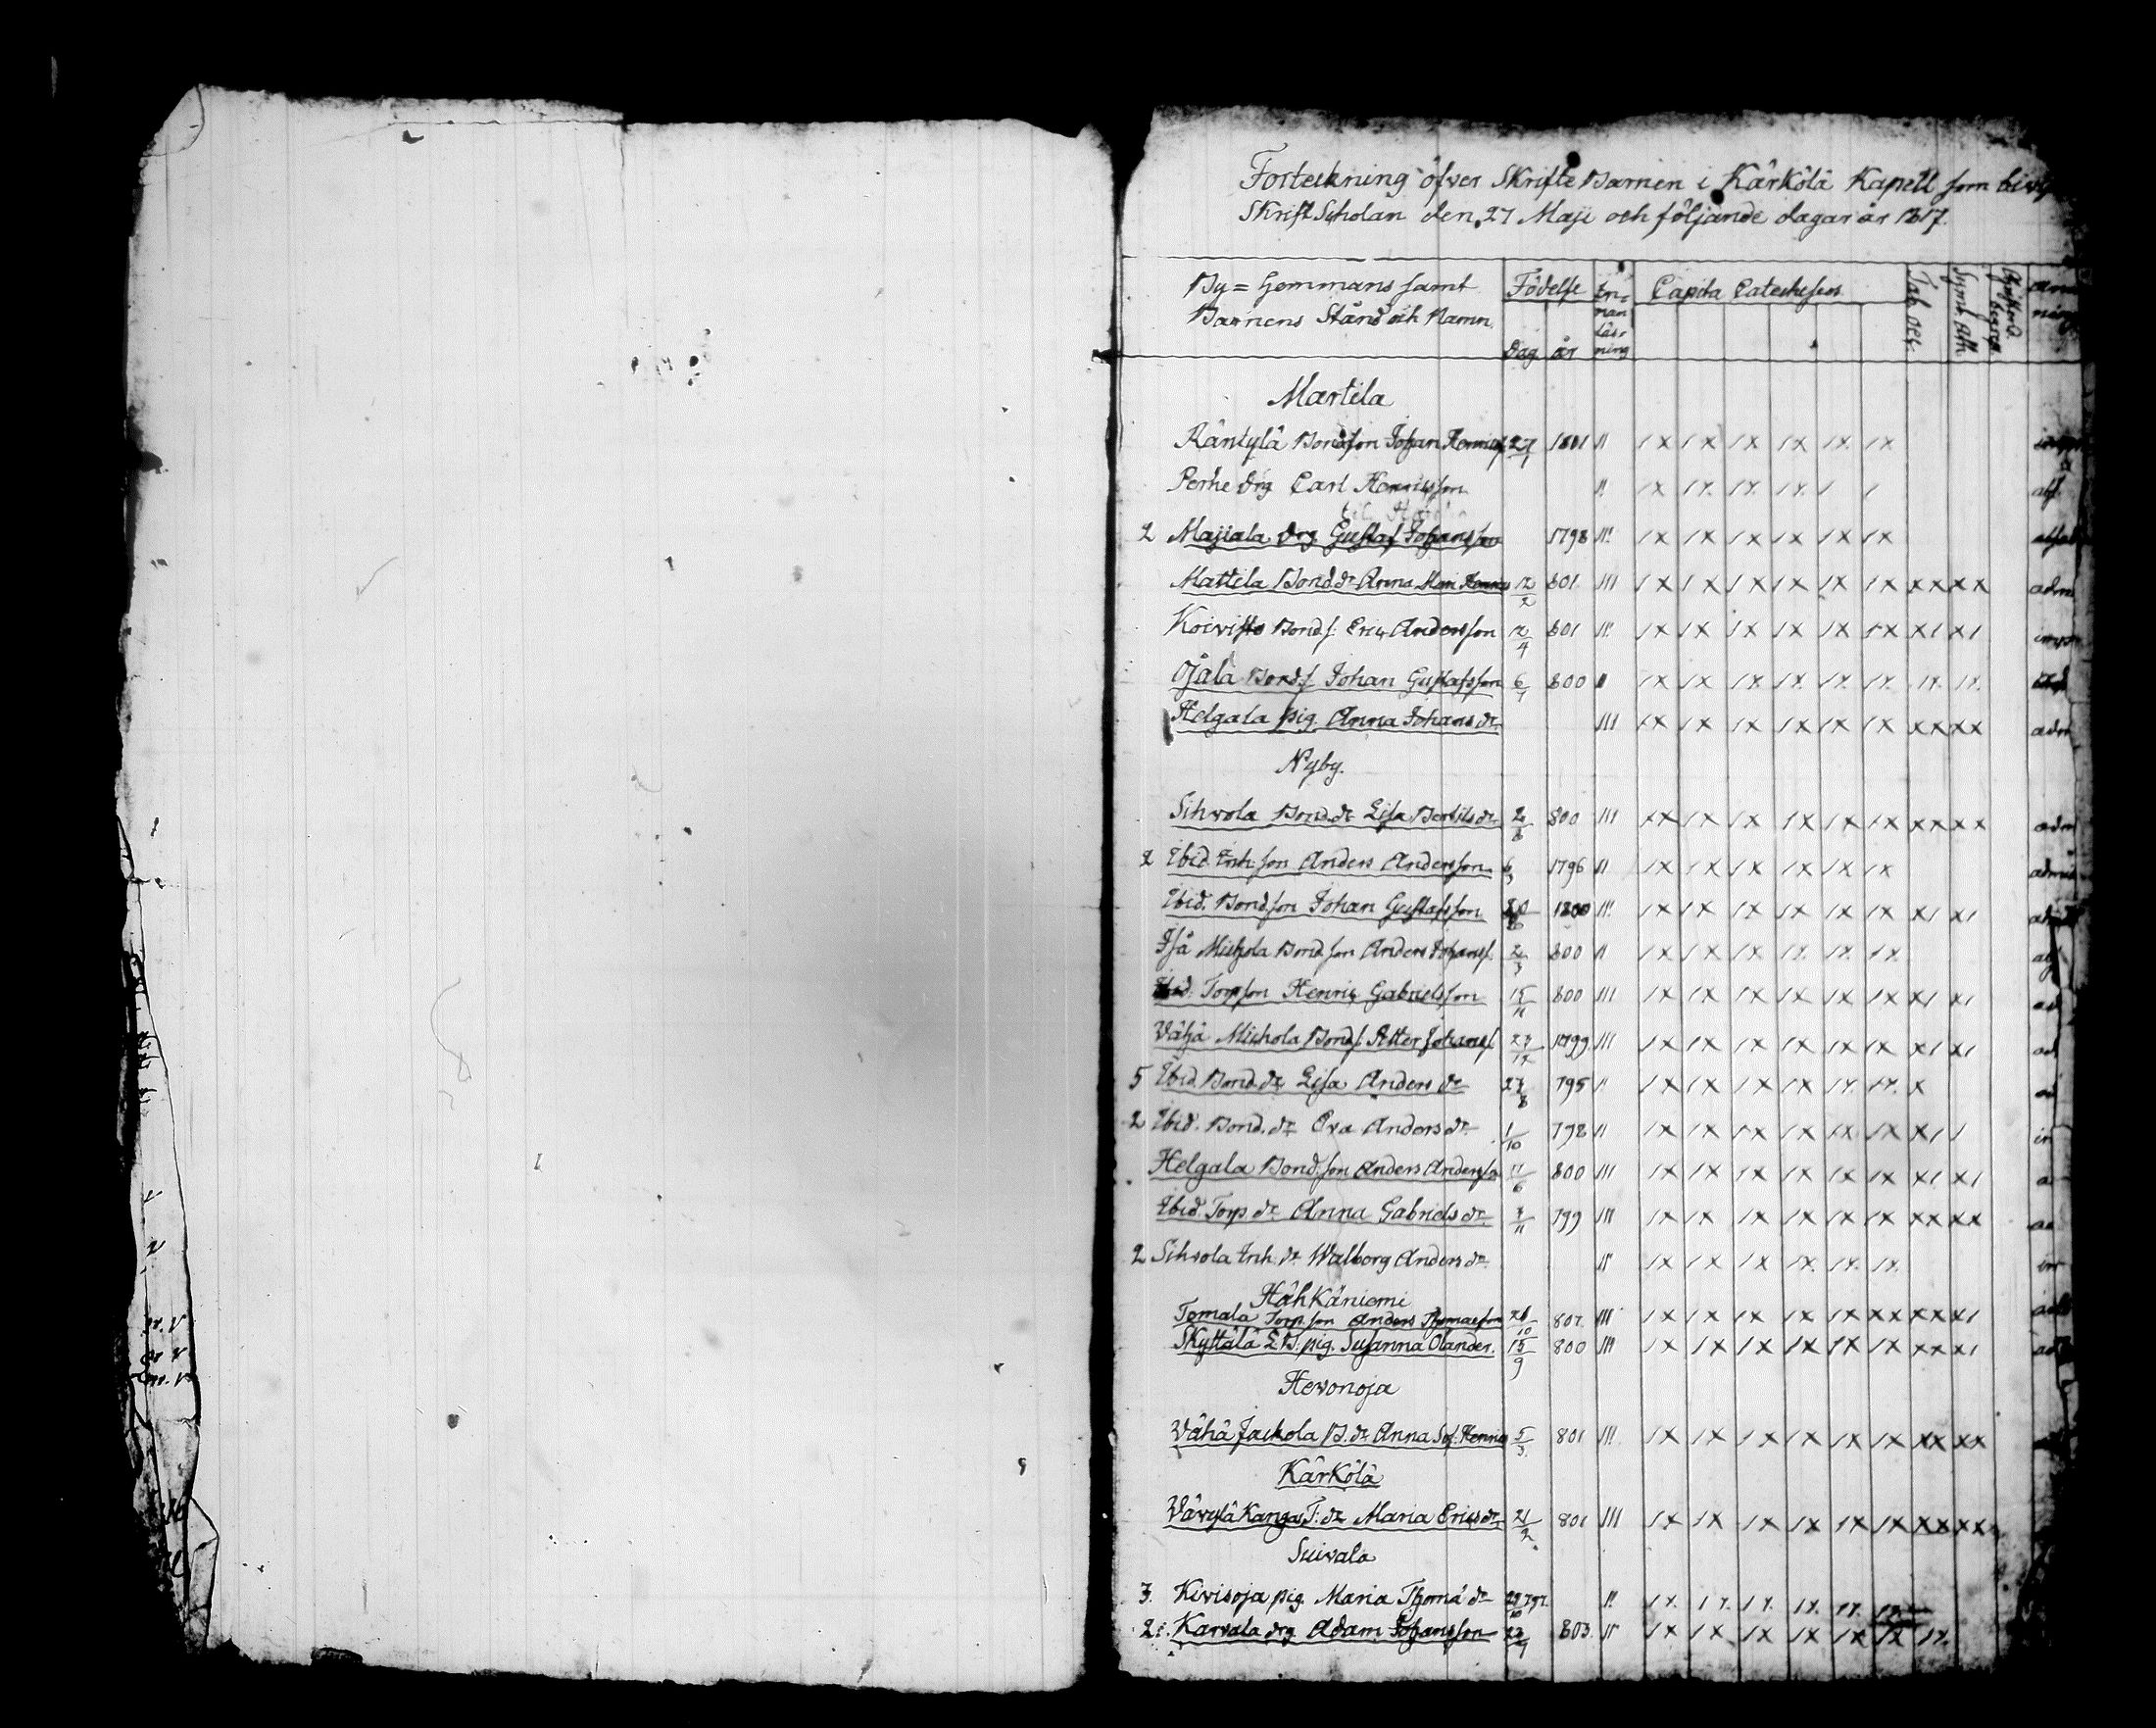 Förteckning öfver SkrifteBarnen i Kärkölä Kapell som
Skrift Scholan den 27 Maji och följande dagar år 1817.
By = Hemmans samt Barnens Stånd och Namn
Födelse
Dag år
Innan läsning
Capita Catecheseos
Tab. oec.
Symb. Ath.
Martila
Räntylä Bondson Johan Henricss 27/1 1801 11 1x 1x 1x 1x 1x 1x
Perhe drg Carl Henricsson 11 1x 1x 1x 1x 1 1
2 Majiala drg Gustaf Johansson 1798 111 1x 1x 1x 1x 1x 1x
Mattila Bond dr Anna Mari Henrics 12/2 801 111 1x 1x 1x 1x 1x 1x xx xx adm
Koivisto Bond s. Eric Andersson 12/4 801 111 1x 1x 1x 1x 1x 1x x1 x1
Ojala Bond s. Johan Gustafsson 6/7 800 11 1x 1x 1x 1x 1x 1x 1x 1x
Helgala pig. Anna Johans dr 111 1x 1x 1x 1x 1x 1x xx xx adm
Nyby.
Sihvola Bond. dr Lisa Bertils dr 2/6 800 111 xx 1x 1x 1x 1x 1x xx xx adm
2 Ibid. Inh. son Anders Andersson 6/3 1796 11 1x 1x 1x 1x 1x 1x
Ibid. Bondson Johan Gustafsson 1800 111 1x 1x 1x 1x 1x 1x x1 x1
Iså Michola Bondson Anders Johanss. 2/3 800 11 1x 1x 1x 1x 1x 1x
Ibid: Torpson Henric Gabrielsson 15/11 800 111 1x 1x 1x 1x 1x 1x x1 x1 ad
Wähä Michola Bond s. Petter Johanss 27/12 1799 111 1x 1x 1x 1x 1x 1x x1 x1 ad
5 Ibid. Bond. dr Lisa Anders dr 27/8 795 11 1x 1x 1x 1x 1x 1x x
2 Ibid. Bond. dr Eva Anders dr 1/10 798 11 1x 1x 1x 1x 1x 1x x1 1 in
Helgala Bondson Anders Andersson 11/6 800 111 1x 1x 1x 1x 1x 1x x1 x1
Ibid. Torp dr Anna Gabriels dr 7/11 799 111 1x 1x 1x 1x 1x 1x xx xx
2 Sihvola Inh. dr Walborg Anders dr 11 1x 1x 1x 1x 1x 1x
Hähkäniemi
Tomala Torpson Anders Thomasson 26/10 801. 111 1x 1x 1x 1x 1x xx xx x1
Skyttälä pig. Susanna Olander. 15/9 800 111 1x 1x 1x 1x 1x 1x xx x1
Hevonoja
Wähä Jackola B. dr Anna Sof. Henrics 5/3 801 111 1x 1x 1x 1x 1x 1x xx xx
Kärkölä
Wävylä Kangas T: dr Maria Erics dr 21/2 801 111 1x 1x 1x 1x 1x 1x xx xx
Suivala
3. Kivisoja pig. Maria Thomæ dr 29/10 797. 11 1x 1x 1x 1x 1x 1x
2. Karvala drg Adam Johansson 23/9 803. 11 1x 1x 1x 1x 1x 1x 1x